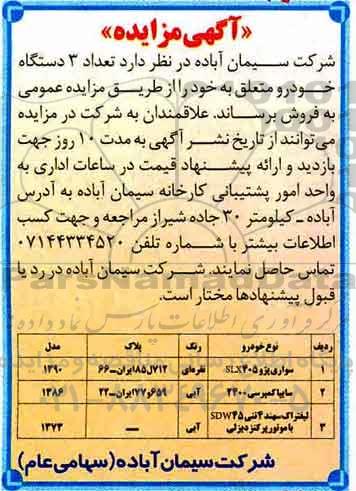 «آگهی مزایده»
شرکت سیمان آباده در نظر دارد تعداد ۳ دستگاه
خودرو متعلق به خود را از طریق مزایده عمومی
به فروش برساند. علاقمندان به شرکت در مزایده
می‌توانند از تاریخ نشر آگهی به مدت ۱۰ روز جهت
بازدید و ارائه پیشنهاد قیمت در ساعات اداری به
واحد امور پشتیبانی کارخانه سیمان آباده به آدرس
آباده - کیلومتر ۳۰ جاده شیراز مراجعه و جهت کسب
اطلاعات بیشتر با شماره تلفن ۰۷۱۴۴۳۳۴۵۲۰
تماس حاصل نمایند. شرکت سیمان آباده در رد یا
قبول پیشنهادها مختار است.
ردیف نوع خودرو رنگ پلاک مدل
۱ سواری پژو ۴۰۵ SLX نقره‌ای ۷۱۲ل۱۸۵ایران-۶۶ ۱۳۹۰
۲ سایپا کمپرسی ۲۴۰۰ آبی ۶۵۹و۱۷۷ایران-۲۳ ۱۳۸۶
لیفتراک سهند ۴ تنی SDW۴۵
۳ با موتور پرکنز دیزلی آبی — ۱۳۷۳
شرکت سیمان آباده (سهامی عام)